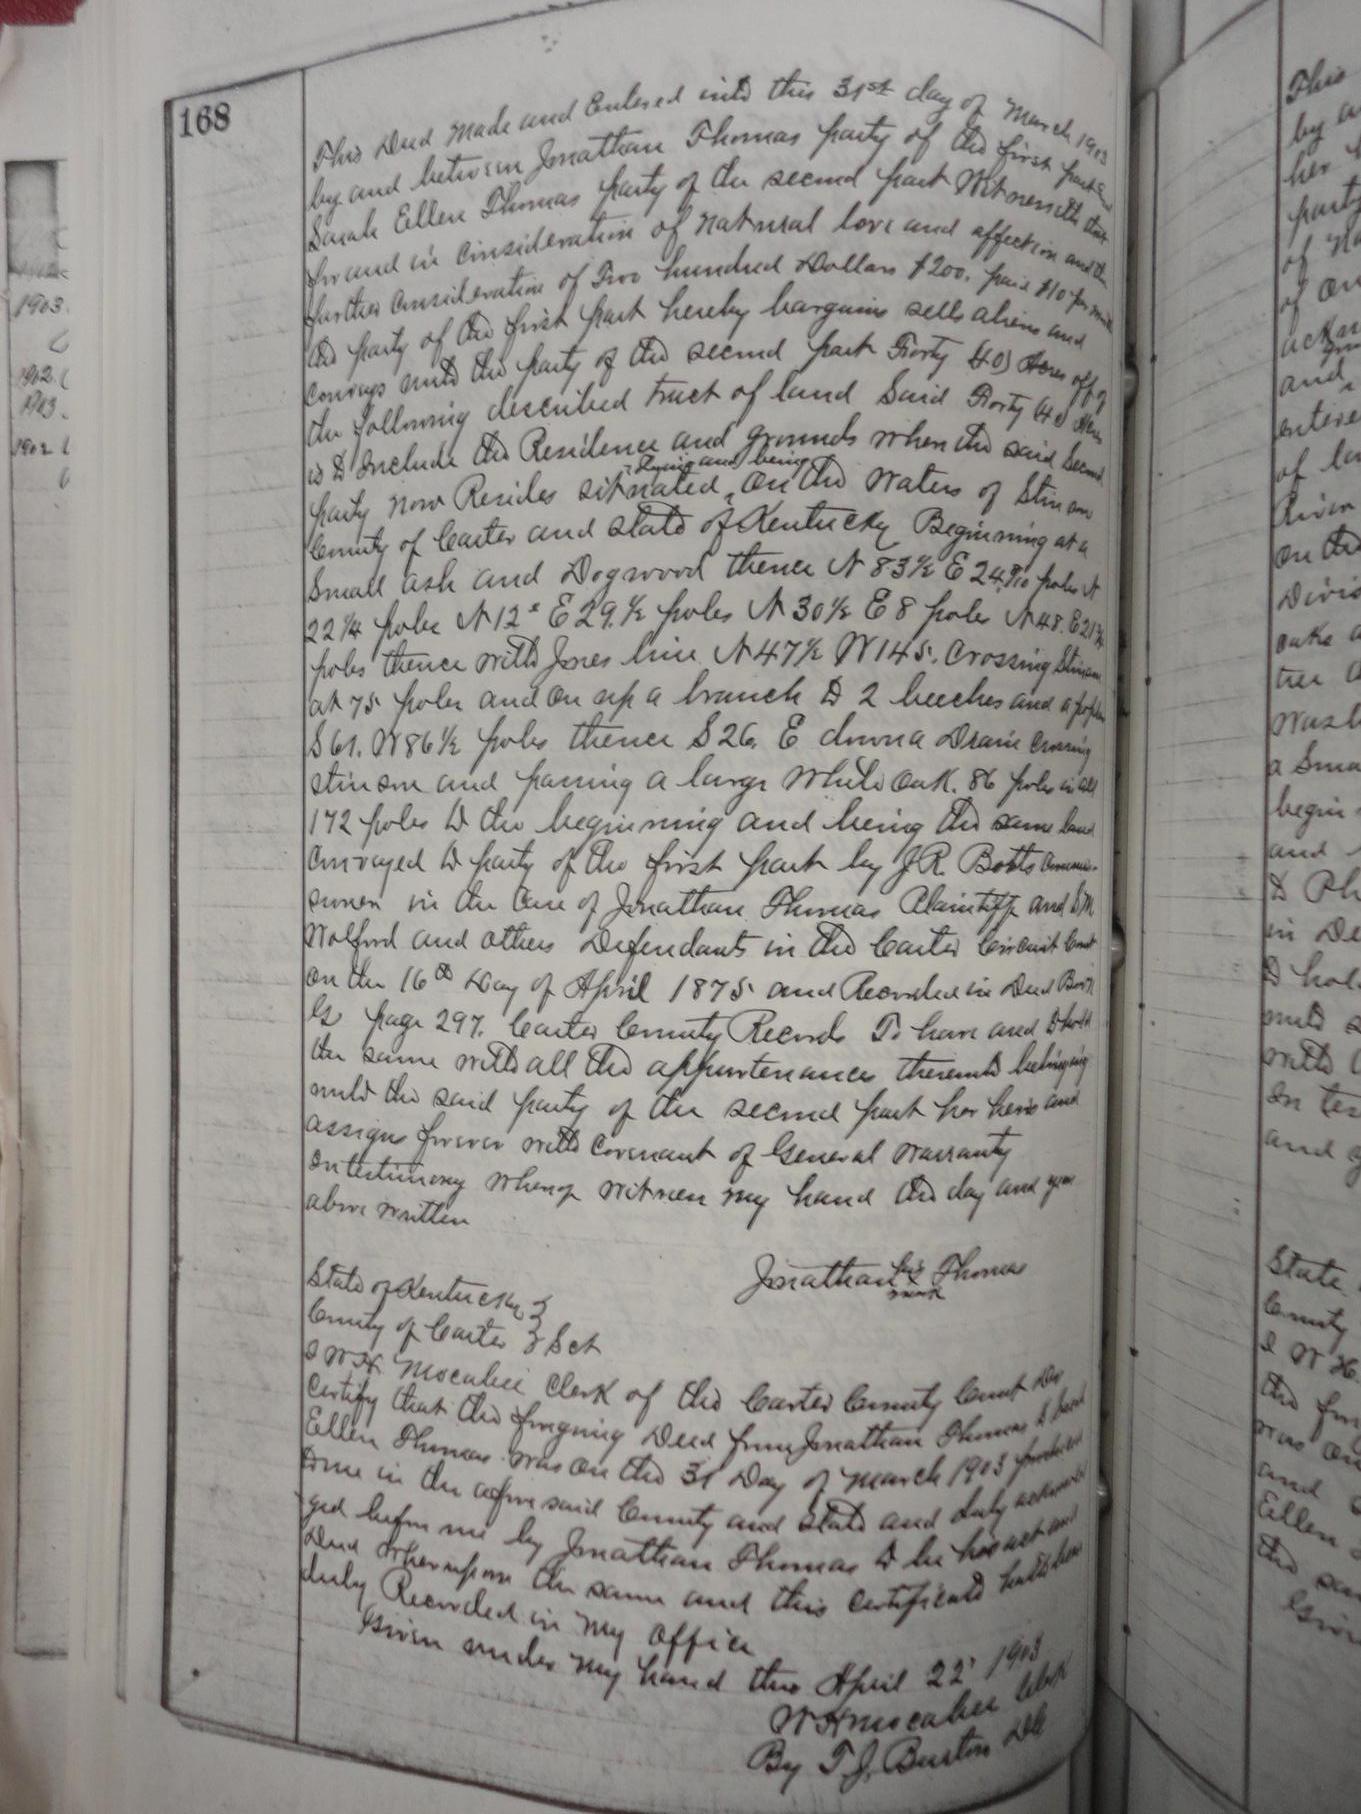 168
This Deed Made and Entered into this 31st day of March 1903
by and between Jonathan Thomas party of the first part and
Sarah Ellen Thomas party of the second part Witnesseth that
for and in Consideration of Natural love and affection and the
further Consideration of Two hundred Dollars $200. paid $10 per
the party of the first part hereby bargains sells aliens and
Conveys unto the party of the second part Forty 40) Acres off of
the following described tract of land Said Forty (40 Acres
is to Include the Residence and grounds where the said Second
party now Resides situated, lying and being on the Waters of Stinson
County of Carter and state of Kentucky Beginning at a
Small ash and Dogwood thence N 83½ E 24 8/10 poles N
22¼ poles N 12° E 29.½ poles N 30½ E 8 poles N 48. E 21¾
poles thence with Jones line N 47½ W 145. Crossing Stinson
at 75 poles and on up a branch to 2 beeches and a poplar
S 61. W 86½ poles thence S 26. E down a Drain Crossing
Stinson and passing a large White Oak. 86 poles in all
172 poles to the beginning and being the same land
Conveyed to party of the first part by J. R. Botts Commis-
sioner in the Case of Jonathan Thomas Plaintiff and
Wolford and others Defendants in the Carter Circuit Court
on the 16th Day of April 1875 and Recorded in Deed Book
G page 297. Carter County Records To have and to hold
the same with all the appurtenances thereunto belonging
unto the said party of the second part her heirs and
assigns forever with Covenant of General Warranty
In testimony whereof witness my hand the day and year
above written
Jonathan his x mark Thomas
State of Kentucky }
County of Carter } Sct
I W H McCabee Clerk of the Carter County Court Do
Certify that the foregoing Deed from Jonathan Thomas to Sarah
Ellen Thomas was on the 31 Day of March 1903 produced
to me in the aforesaid County and State and duly acknowled
ged before me by Jonathan Thomas to be his act and
Deed Whereupon the same and this Certificate hath been
duly Recorded in My Office
Given under My hand this April 22' 1903
W H McCabee Clerk
By T. J. Burton DC
1903.
1902
1903.
1902
This
by
her
party
of
of
and
of
River
on the
tree
a Sma
begin
and
in De
to hol
unto
with
In tes
and
State
County
I W H
the
was on
and
Ellen
the
Given